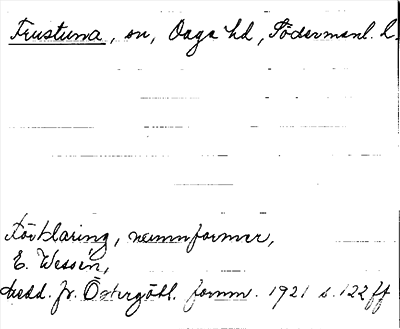 Frustuna, sn, Daga hd, Södermanl. l.
Förklaring, namnformer,
E. Wessén,
Medd. fr. Östergötl. fornm. 1921 s. 122 ff